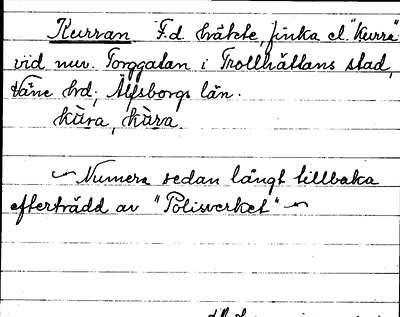 Kurran F.d. häkte, finka el. "kurra"
vid nuv. Torggatan i Trollhättans stad,
Väne hd; Älfsborgs län.
kùra, kùra
~ Numera sedan långt tillbaka
efterträdd av "Polisverket" ~